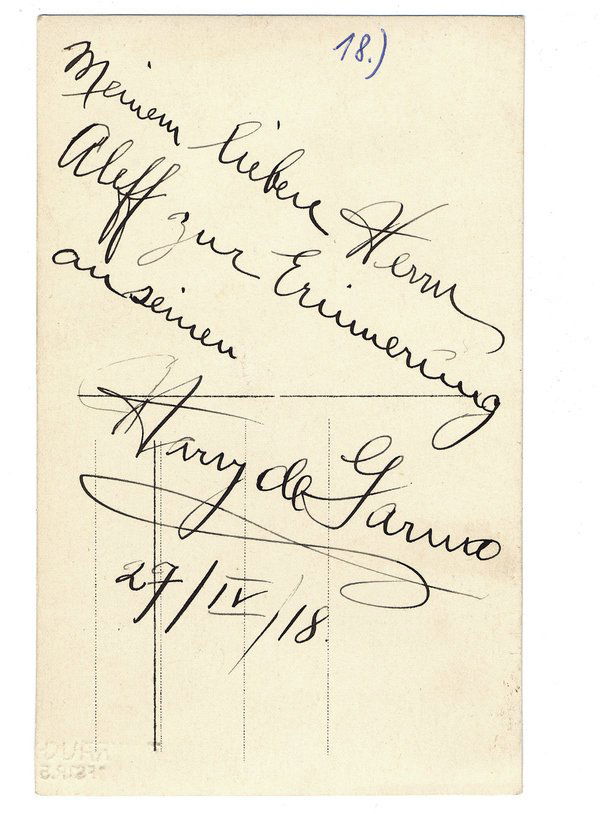 18.)
Meinem lieben Herrn
Aleff zur Erinnerung
an seinen
Harry de Garmo
29/IV/18.